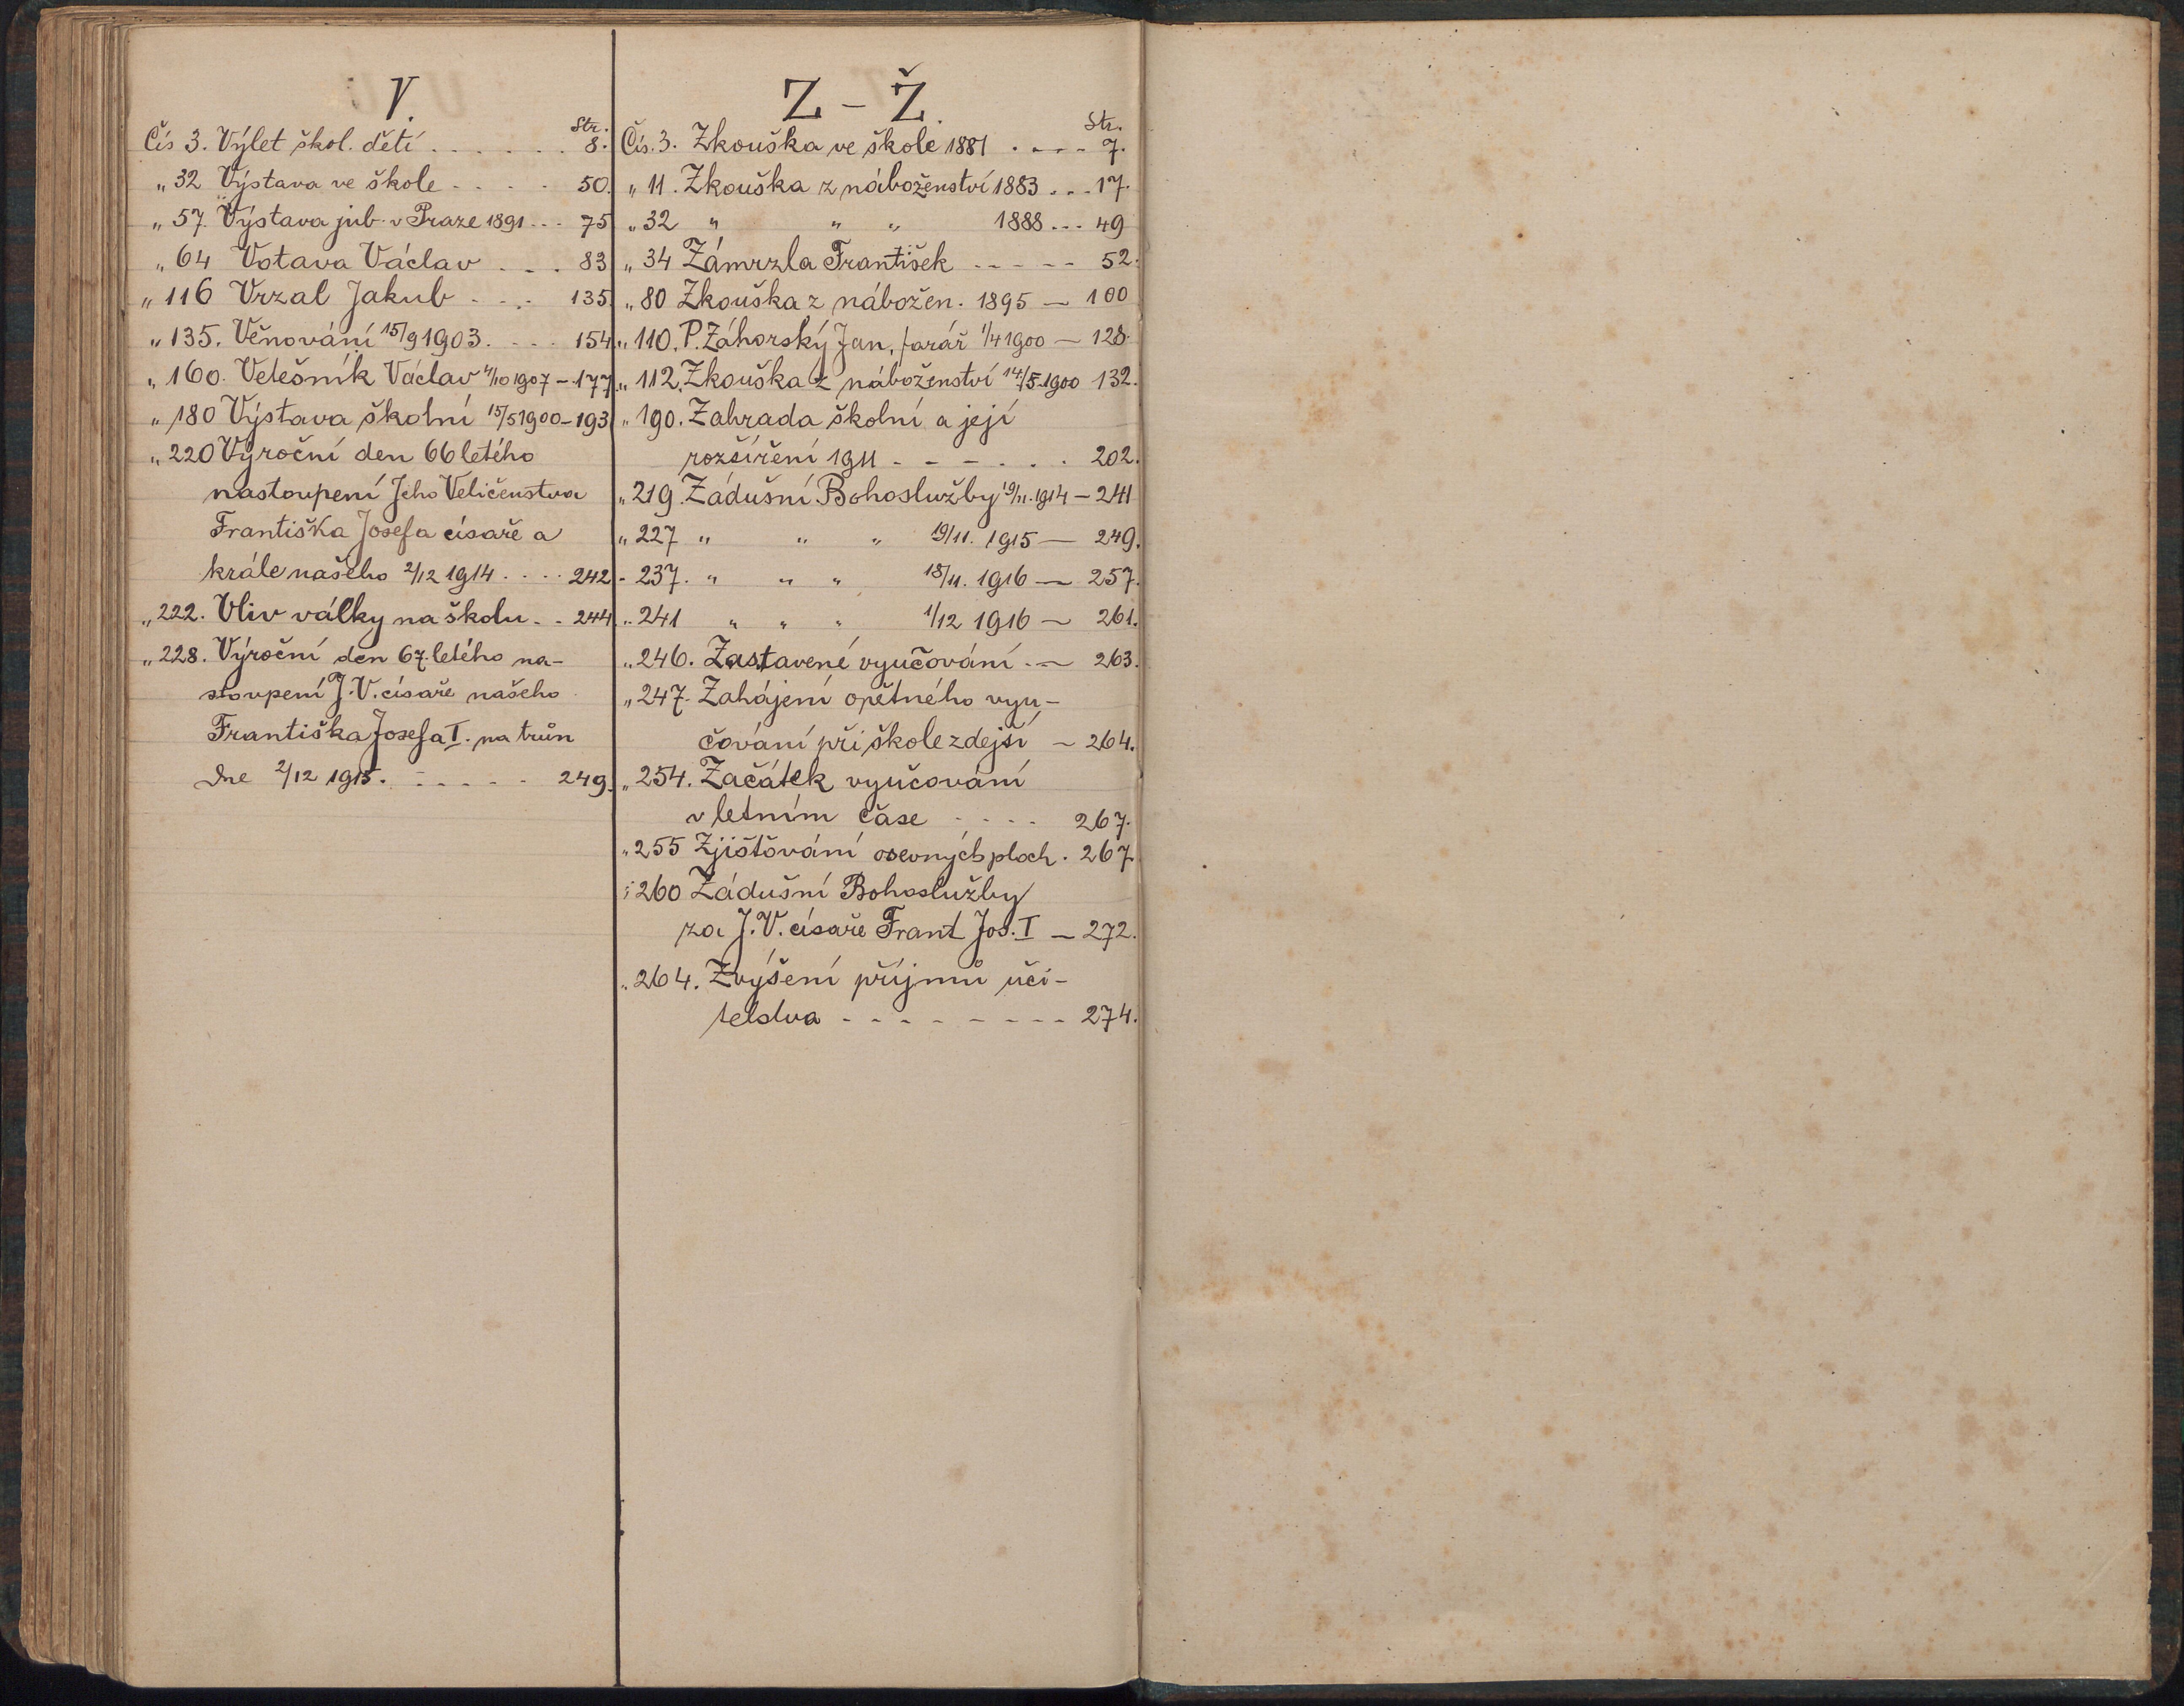 V.
Str.
Čís 3. Výlet škol. dětí . . . . . . 8.
„ 32 Výstava ve škole . . . . 50.
„ 57. Výstava jub. v Praze 1891 . . . 75
„ 64 Votava Václav . . . 83
„ 116 Vrzal Jakub . . . 135.
„ 135. Věnování 15/9 1903. . . . 154
„ 160. Velešník Václav 1/10 1907 – 177
„ 180 Výstava školní 15/5 1900 – 193
„ 220 Výroční den 66 letého
nastoupení Jeho Veličenstva
Františka Josefa císaře a
krále našeho 2/12 1914 . . . . 242
„ 222. Vliv války na školu . . 244.
„ 228. Výroční den 67. letého na-
stoupení J. V. císaře našeho
Františka Josefa I. na trůn
dne 2/12 1915. – . . . . 249.
Z – Ž.
Str.
Čís. 3. Zkouška ve škole 1881 . - - - 7.
„ 11. Zkouška z náboženství 1883 . . . 17.
„ 32 „ „ „ 1888 . . . 49
„ 34 Zámrzla František - - - - - 52.
„ 80 Zkouška z nábožen. 1895 — 100
„ 110. P. Záhorský Jan, farář 1/4 1900 — 128.
„ 112. Zkouška z náboženství 14/5. 1900 132.
„ 190. Zahrada školní a její
rozšíření 1911 - - - . . . 202.
„ 219. Zádušní Bohoslužby 19/11. 1914 – 241
„ 227 „ „ „ 19/11. 1915 — 249.
- 237. „ „ „ 18/11. 1916 — 257.
„ 241 „ „ „ 1/12 1916 — 261.
„ 246. Zastavené vyučování . — 263.
„ 247. Zahájení opětného vyu-
čování při škole zdejší – 264.
„ 254. Začátek vyučování
v letním čase . . . . 267.
„ 255 Zjišťování osevných ploch . 267.
„ 260 Zádušní Bohoslužby
za J. V. císaře Frant Jos. I – 272.
„ 264. Zvýšení příjmů uči-
telstva - - - - - - - - - 274.